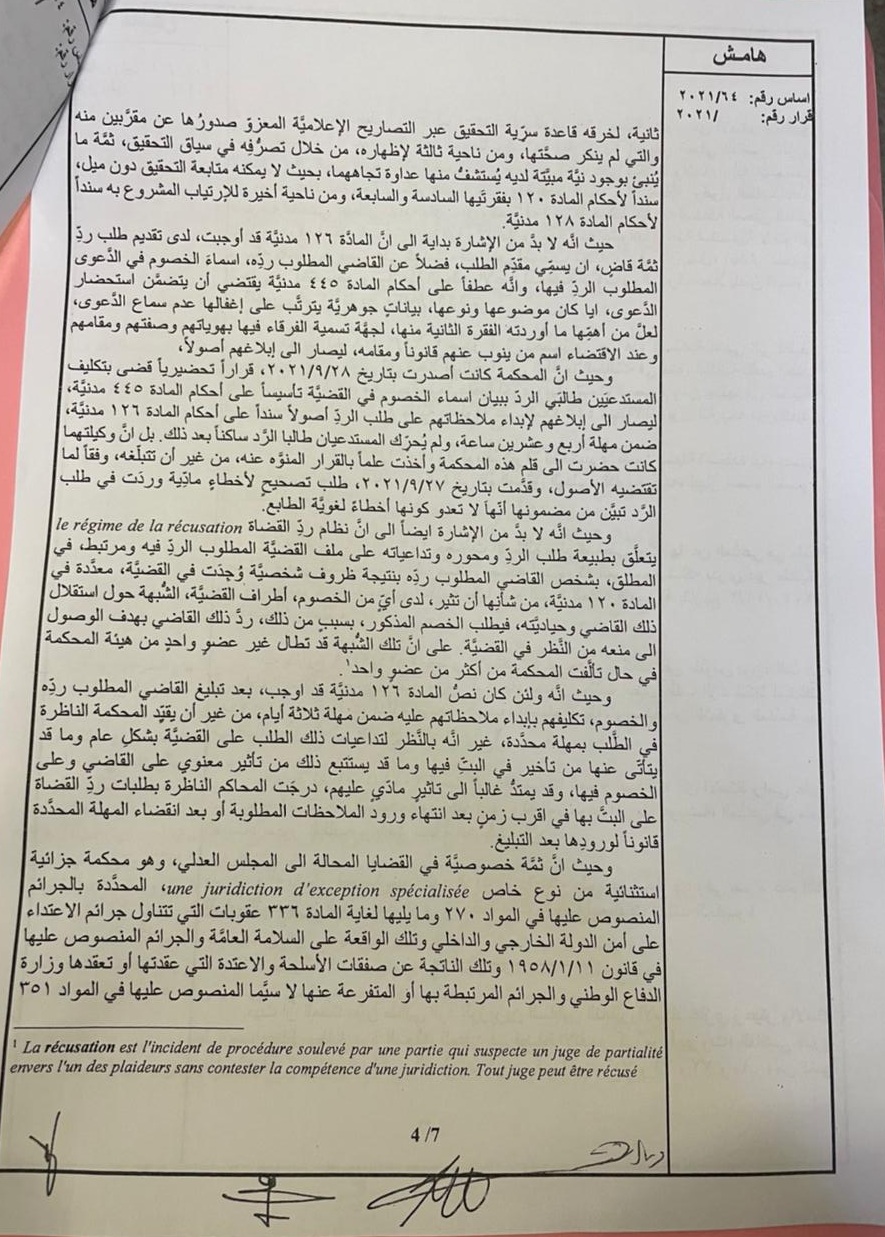 هامش
اساس رقم: ٢٠٢١/٦٤
قرار رقم: /٢٠٢١
ثانية، لخرقه قاعدة سرّية التحقيق عبر التصاريح الإعلاميَّة المعزوّ صدورُها عن مقرَّبين منه
والتي لم ينكر صحَّتها، ومن ناحية ثالثة لإظهاره، من خلال تصرُّفِه في سياق التحقيق، ثمَّة ما
يُنبئ بوجود نيَّة مبيَّتة لديه يُستشفُّ منها عداوة تجاههما، بحيث لا يمكنه متابعة التحقيق دون ميل،
سنداً لأحكام المادة ١٢٠ بفقرتَيها السادسة والسابعة، ومن ناحية أخيرة للإرتياب المشروع به سنداً
لأحكام المادة ١٢٨ مدنيَّة.
حيث انَّه لا بدَّ من الإشارة بداية الى انَّ المادَّة ١٢٦ مدنيَّة قد أوجبت، لدى تقديم طلب ردِّ
ثمَّة قاضٍ، ان يسمّي مقدّم الطلب، فضلاً عن القاضي المطلوب ردّه، اسماءَ الخصوم في الدَّعوى
المطلوب الردّ فيها، وانَّه عطفاً على أحكام المادة ٤٤٥ مدنيَّة يقتضي أن يتضمَّن استحضار
الدَّعوى، ايا كان موضوعها ونوعها، بياناتٍ جوهريَّة يترتَّب على إغفالها عدم سماع الدَّعوى،
لعلَّ من أهمِّها ما أوردته الفقرة الثانية منها، لجهَّة تسمية الفرقاء فيها بهوياتهم وصفتهم ومقامهم
وعند الاقتضاء اسم من ينوب عنهم قانوناً ومقامه، ليصار الى إبلاغهم أصولاً،
وحيث انَّ المحكمة كانت أصدرت بتاريخ ٢٠٢١/٩/٢٨، قراراً تحضيرياً قضى بتكليف
المستدعيَين طالبَي الردّ ببيان اسماء الخصوم في القضيَّة تأسيساً على أحكام المادة ٤٤٥ مدنيَّة،
ليصار الى إبلاغهم لإبداء ملاحظاتهم على طلب الردّ أصولاً سنداً على أحكام المادة ١٢٦ مدنيَّة،
ضمن مهلة أربع وعشرين ساعة، ولم يُحرّك المستدعيان طالبا الرَّد ساكناً بعد ذلك. بل انَّ وكيلتهما
كانت حضرت الى قلم هذه المحكمة وأخذت علماً بالقرار المنوَّه عنه، من غير أن تتبلَّغه، وفقاً لما
تقتضيه الأصول، وقدَّمت بتاريخ ٢٠٢١/٩/٢٧، طلب تصحيحٍ لأخطاءٍ مادّية وردَت في طلب
الرَّد تبيَّن من مضمونها أنّها لا تعدو كونها أخطاءً لغويَّة الطابع.
وحيث انَّه لا بدَّ من الإشارة ايضاً الى انَّ نظام ردّ القضاة le régime de la récusation
يتعلَّق بطبيعة طلب الردّ ومحوره وتداعياته على ملف القضيَّة المطلوب الردّ فيه ومرتبط، في
المطلق، بشخص القاضي المطلوب ردّه بنتيجة ظروف شخصيَّة وُجدَت في القضيَّة، معدَّدة في
المادة ١٢٠ مدنيَّة، من شأنها أن تثير، لدى أيٍّ من الخصوم، أطراف القضيَّة، الشُّبهة حول استقلال
ذلك القاضي وحياديَّته، فيطلب الخصم المذكور، بسببٍ من ذلك، ردَّ ذلك القاضي بهدف الوصول
الى منعه من النَّظر في القضيَّة. على انَّ تلك الشُّبهة قد تطال غير عضوٍ واحدٍ من هيئة المحكمة
في حال تألَّفت المحكمة من أكثر من عضوٍ واحد¹.
وحيث انَّه ولئن كان نصُّ المادة ١٢٦ مدنيَّة قد اوجب، بعد تبليغ القاضي المطلوب ردّه
والخصوم، تكليفهم بإبداء ملاحظاتهم عليه ضمن مهلة ثلاثة أيام، من غير أن يقيِّد المحكمة الناظرة
في الطَّلب بمهلة محدَّدة، غير انَّه بالنَّظر لتداعيات ذلك الطلب على القضيَّة بشكلٍ عام وما قد
يتأتَّى عنها من تأخير في البتّ فيها وما قد يستتبع ذلك من تأثير معنوي على القاضي وعلى
الخصوم فيها، وقد يمتدُّ غالباً الى تاثيرٍ مادّي عليهم، درجَت المحاكم الناظرة بطلبات ردّ القضاة
على البتَّ بها في اقرب زمنٍ بعد انتهاء ورود الملاحظات المطلوبة أو بعد انقضاء المهلة المحدَّدة
قانوناً لورودِها بعد التبليغ.
وحيث انَّ ثمَّة خصوصيَّة في القضايا المحالة الى المجلس العدلي، وهو محكمة جزائية
استثنائية من نوع خاص une juridiction d'exception spécialisée، المحدَّدة بالجرائم
المنصوص عليها في المواد ٢٧٠ وما يليها لغاية المادة ٣٣٦ عقوبات التي تتناول جرائم الاعتداء
على أمن الدولة الخارجي والداخلي وتلك الواقعة على السلامة العامَّة والجرائم المنصوص عليها
في قانون ١٩٥٨/١/١١ وتلك الناتجة عن صفقات الأسلحة والاعتدة التي عقدتها أو تعقدها وزارة
الدفاع الوطني والجرائم المرتبطة بها أو المتفرعة عنها لا سيَّما المنصوص عليها في المواد ٣٥١
¹ La récusation est l'incident de procédure soulevé par une partie qui suspecte un juge de partialité
envers l'un des plaideurs sans contester la compétence d'une juridiction. Tout juge peut être récusé
4/7